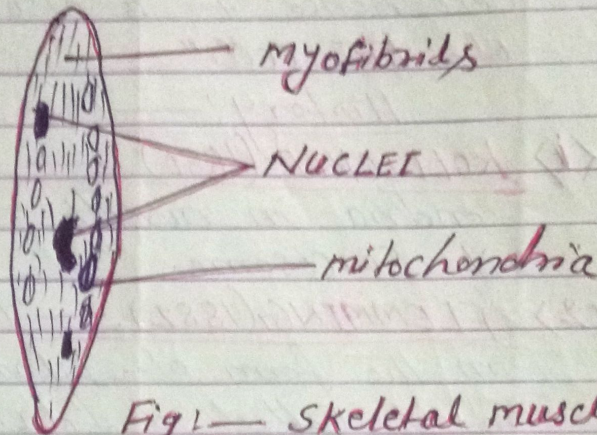 myofibrids
NUCLEI
mitochondria
Fig:— Skeletal muscl